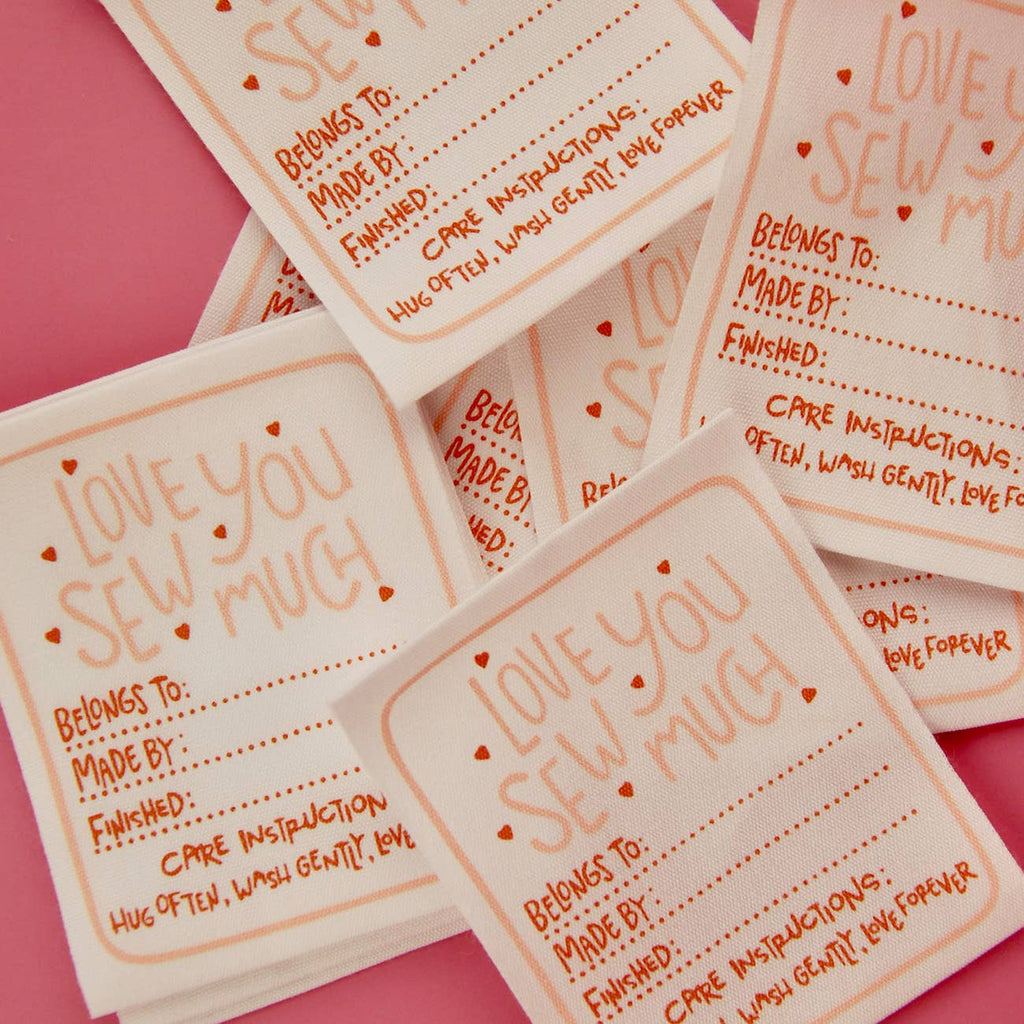 LOVE YOU
SEW MUCH
BELONGS TO:
MADE BY:
FINISHED:
CARE INSTRUCTIONS:
HUG OFTEN, WASH GENTLY, LOVE FOREVER
LOVE
SEW MU
BELONGS TO:
MADE BY:
FINISHED:
CARE INSTRUCTIONS:
OFTEN, WASH GENTLY, LOVE FO
BELON
MADE BY
HED:
LO
S
BEL
LOVE YOU
SEW MUCH
BELONGS TO:
MADE BY:
FINISHED:
CARE INSTRUCTION
HUG OFTEN, WASH GENTLY, LOVE
ONS:
LOVE FOREVER
LOVE YOU
SEW MUCH
BELONGS TO:
MADE BY:
FINISHED:
CARE INSTRUCTIONS:
WASH GENTLY, LOVE FOREVER